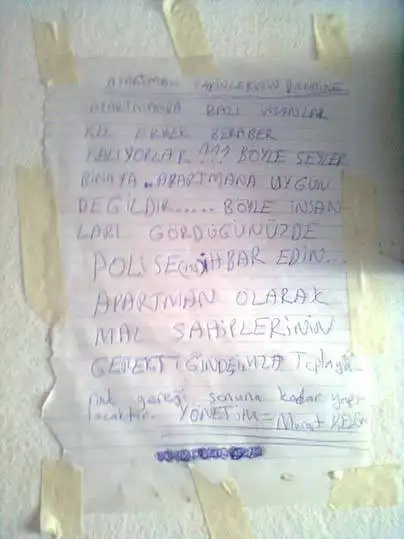 APARTMAN SAKİNLERİNİN DİKKATİNE
APARTMANDA BAZI İNSANLAR
KIZ ERKEK BERABER
KALIYORLAR ??? BÖYLE ŞEYLER
BİNAYA .. APARTMANA UYGUN
DEĞİLDİR..... BÖYLE İNSAN
LARI GÖRDÜĞÜNÜZDE
POLİSE İHBAR EDİN...
APARTMAN OLARAK
MAL SAHİPLERİNİN
GEREKTİĞİNDE İMZA Toplaya
rak gereği sonuna kadar yapı
lacaktır. YÖNETİM = Murat